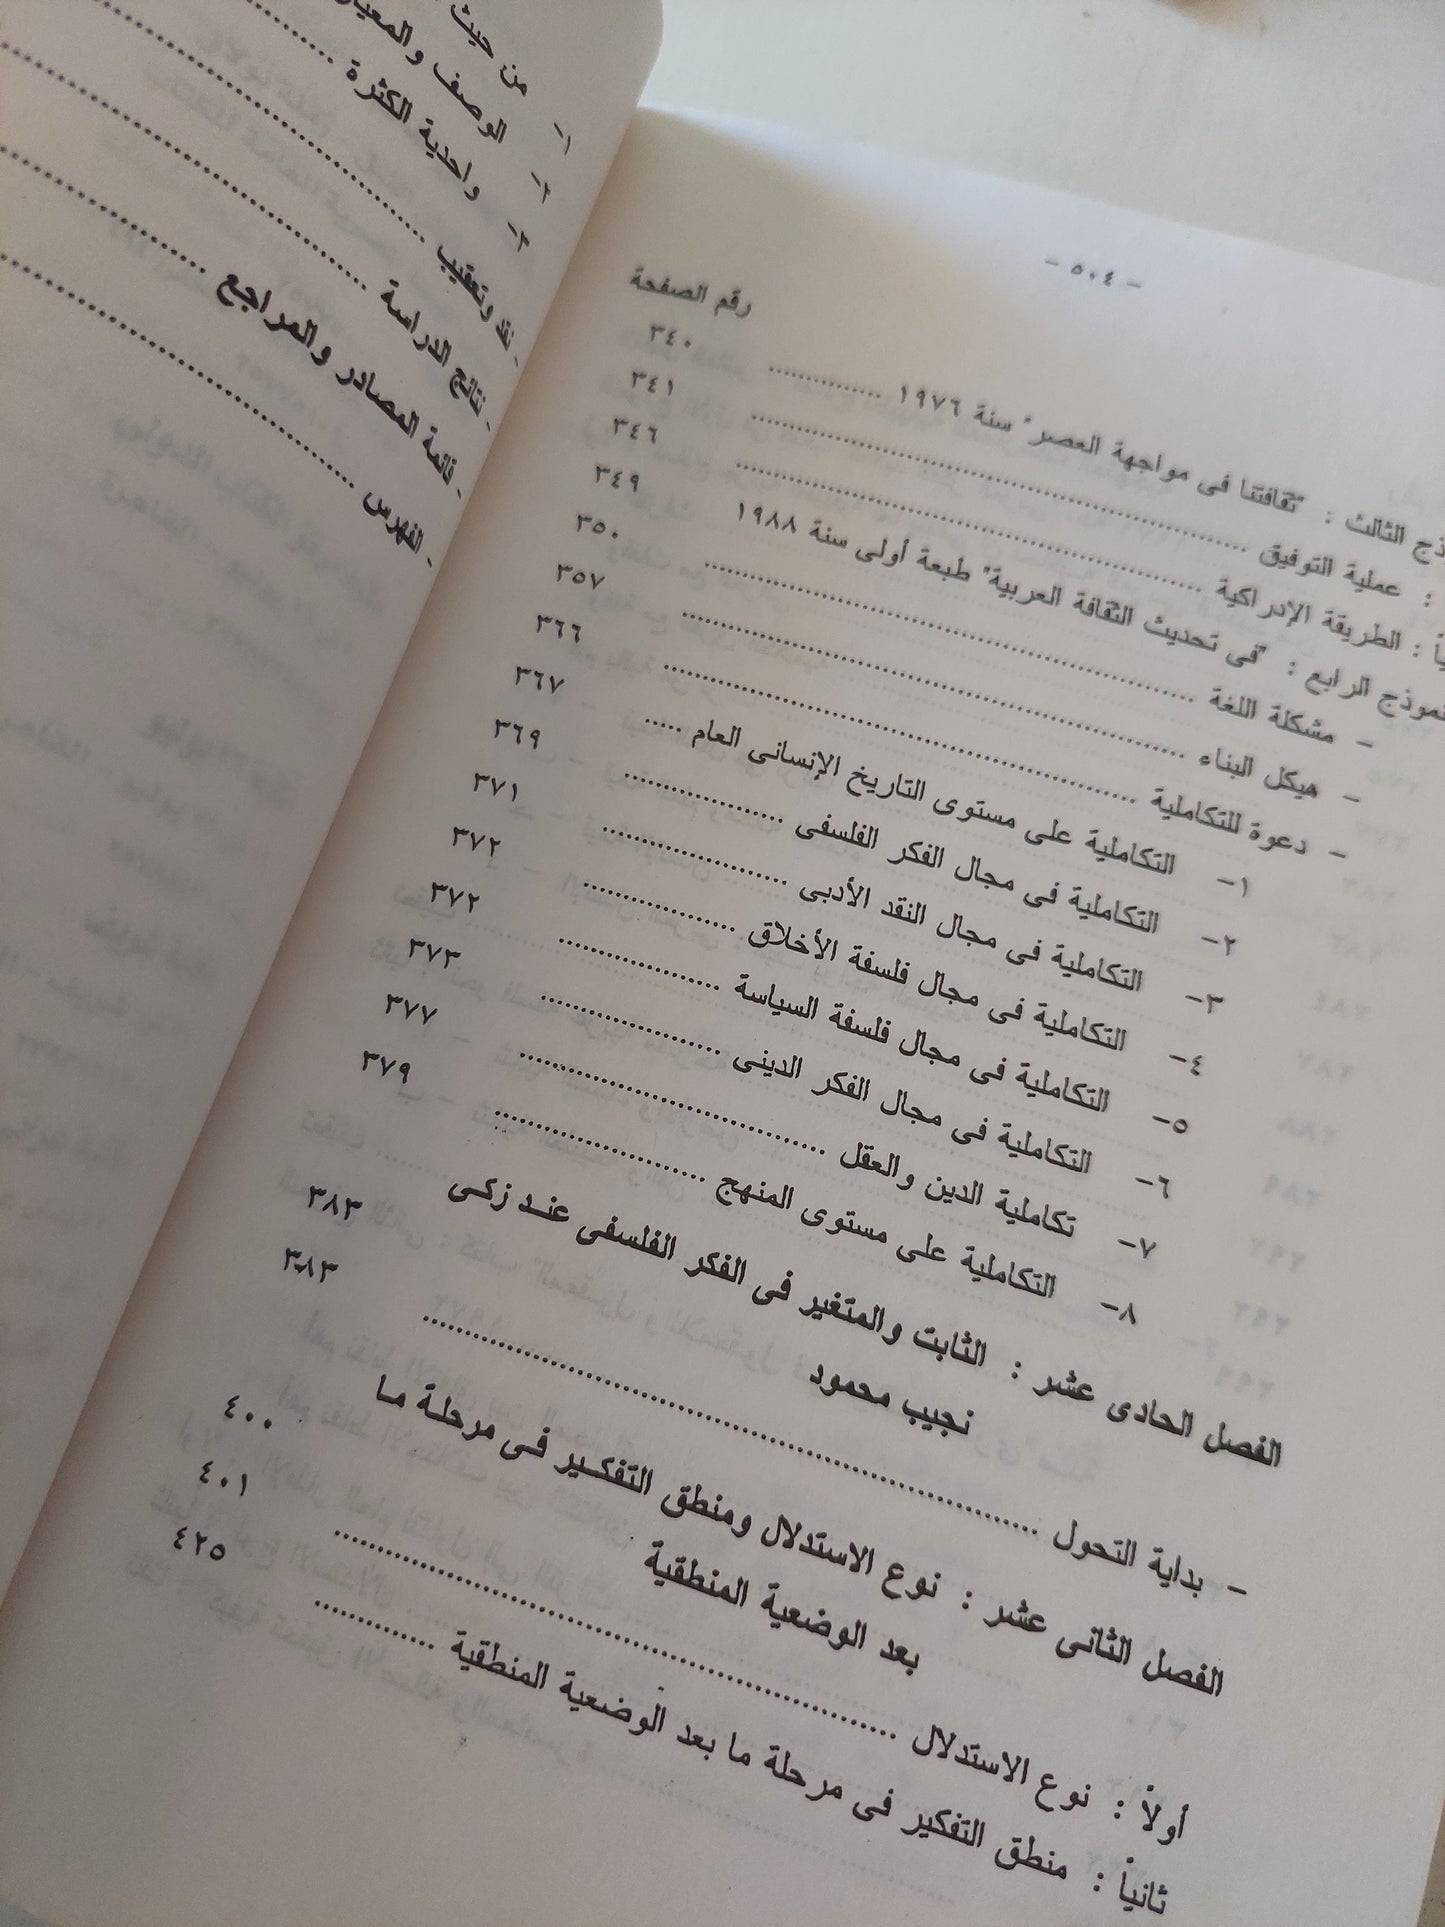 - ٥٠٤ -
رقم الصفحة
ذج الثالث : "ثقافتنا فى مواجهة العصر" سنة ١٩٧٦ .............. ٣٤٠
: عملية التوفيق .............. ٣٤١
ياً : الطريقة الإدراكية .............. ٣٤٦
نموذج الرابع : "فى تحديث الثقافة العربية" طبعة أولى سنة ١٩٨٨ ٣٤٩
- مشكلة اللغة .............. ٣٥٠
- هيكل البناء .............. ٣٥٧
- دعوة للتكاملية .............. ٣٦٦
١- التكاملية على مستوى التاريخ الإنسانى العام ..... ٣٦٧
٢- التكاملية فى مجال الفكر الفلسفى .............. ٣٦٩
٣- التكاملية فى مجال النقد الأدبى .............. ٣٧١
٤- التكاملية فى مجال فلسفة الأخلاق .............. ٣٧٢
٥- التكاملية فى مجال فلسفة السياسة .............. ٣٧٢
٦- التكاملية فى مجال الفكر الدينى .............. ٣٧٣
٧- تكاملية الدين والعقل .............. ٣٧٧
٨- التكاملية على مستوى المنهج .............. ٣٧٩
الفصل الحادى عشر : الثابت والمتغير فى الفكر الفلسفى عند زكى
نجيب محمود ٣٨٣
- بداية التحول .............. ٣٨٣
الفصل الثانى عشر : نوع الاستدلال ومنطق التفكير فى مرحلة ما
بعد الوضعية المنطقية ٤٠٠
أولاً : نوع الاستدلال .............. ٤٠١
ثانياً : منطق التفكير فى مرحلة ما بعد الوضعية المنطقية .............. ٤٢٥
من حيث
١- الوصف والمعيار
٢- واحدية الكثرة ..............
٣-
- نقد وتعقيب ..............
- نتائج الدراسة ..............
- قائمة المصادر والمراجع ..............
- الفهرس ..............